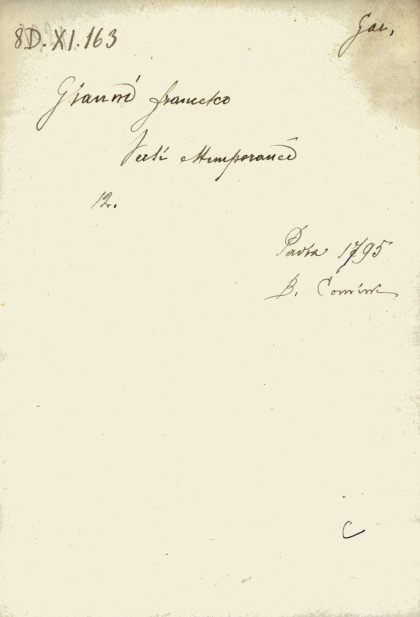 8D. XI. 163
Gai,
Gianni Francesco
Versi estemporanei
12.
Pavia 1795
B. Comini
C